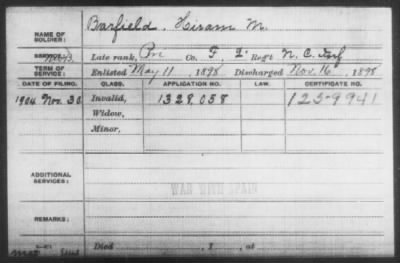 NAME OF SOLDIER: Barfield, Hiram M.
SERVICE: Late rank, Pvt Co. F, 2 Reg't N. C. Inf
TERM OF SERVICE: Enlisted May 11, 1898 Discharged Nov. 16, 1898
DATE OF FILING. CLASS. APPLICATION NO. LAW. CERTIFICATE NO.
1904 Nov. 30 Invalid, 1328.058 1259941
Widow,
Minor,
ADDITIONAL SERVICES:
WAR WITH SPAIN
REMARKS:
Died , 1 , at